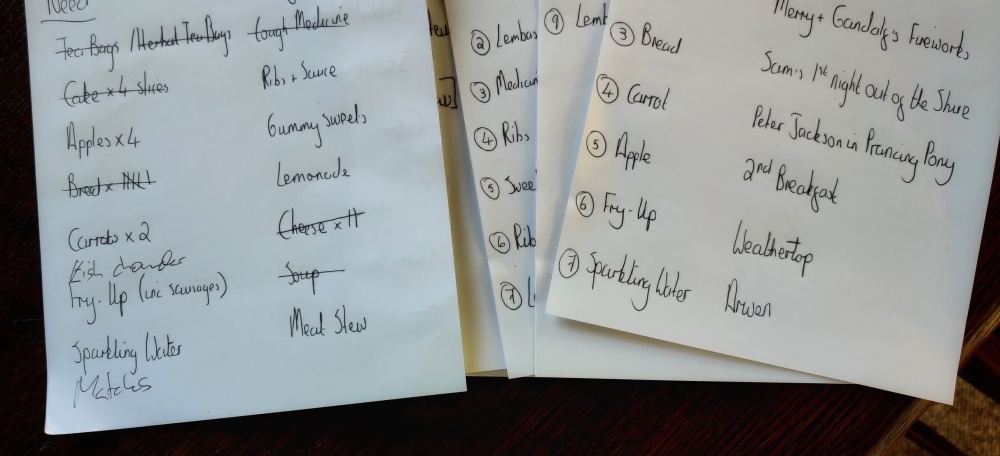 Need
Tea Bags / Herbal Tea Bags
Cake x 4 slices
Apples x 4
Bread x
Carrots x 2
Fish chowder
Fry-Up (inc sausages)
Sparkling Water
Matches
Cough Medicine
Ribs + Sauce
Gummy sweets
Lemonade
Cheese x 11
Soup
Meat Stew
② Lembas
③ Medicin
④ Ribs
⑤ Swee
⑥ Rib
⑦ L
⑨ Lemb
③ Bread
④ Carrot
⑤ Apple
⑥ Fry-Up
⑦ Sparkling Water
Merry + Gandalf's Fireworks
Sam's 1st night out of the Shire
Peter Jackson in Prancing Pony
2nd Breakfast
Weathertop
Arwen